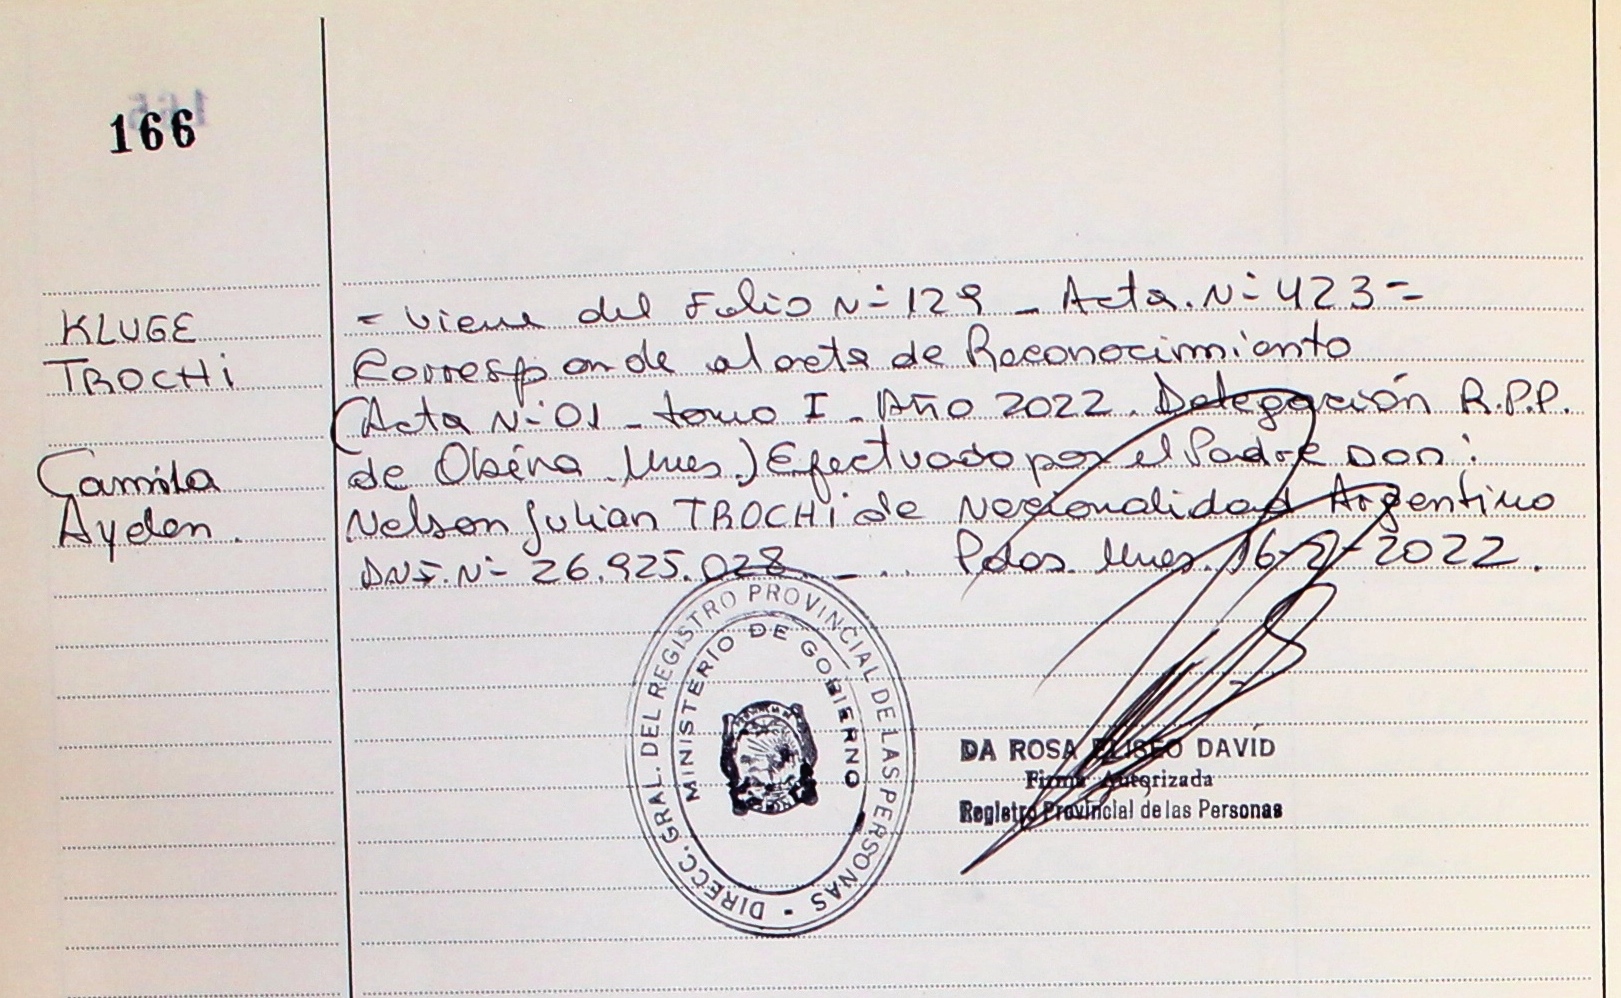 166
KLUGE
TROCHI
Camila
Ayelen.
= Viene del Folio N= 129 _ Acta. N= 423 =
Corresponde al acta de Reconocimiento
(Acta N= 01 _ tomo I _ Año 2022. Delegación R.P.P.
de Oberá Mnes.) Efectuado por el Padre Don:
Nelson Julian TROCHI de Nacionalidad Argentino
DNI. N= 26.925.028 _ . . Pdas. Mnes. 16-2-2022.
DIRECC. GRAL. DEL REGISTRO PROVINCIAL DE LAS PERSONAS -
MINISTERIO DE GOBIERNO
DA ROSA ELISEO DAVID
Firma Autorizada
Registro Provincial de las Personas